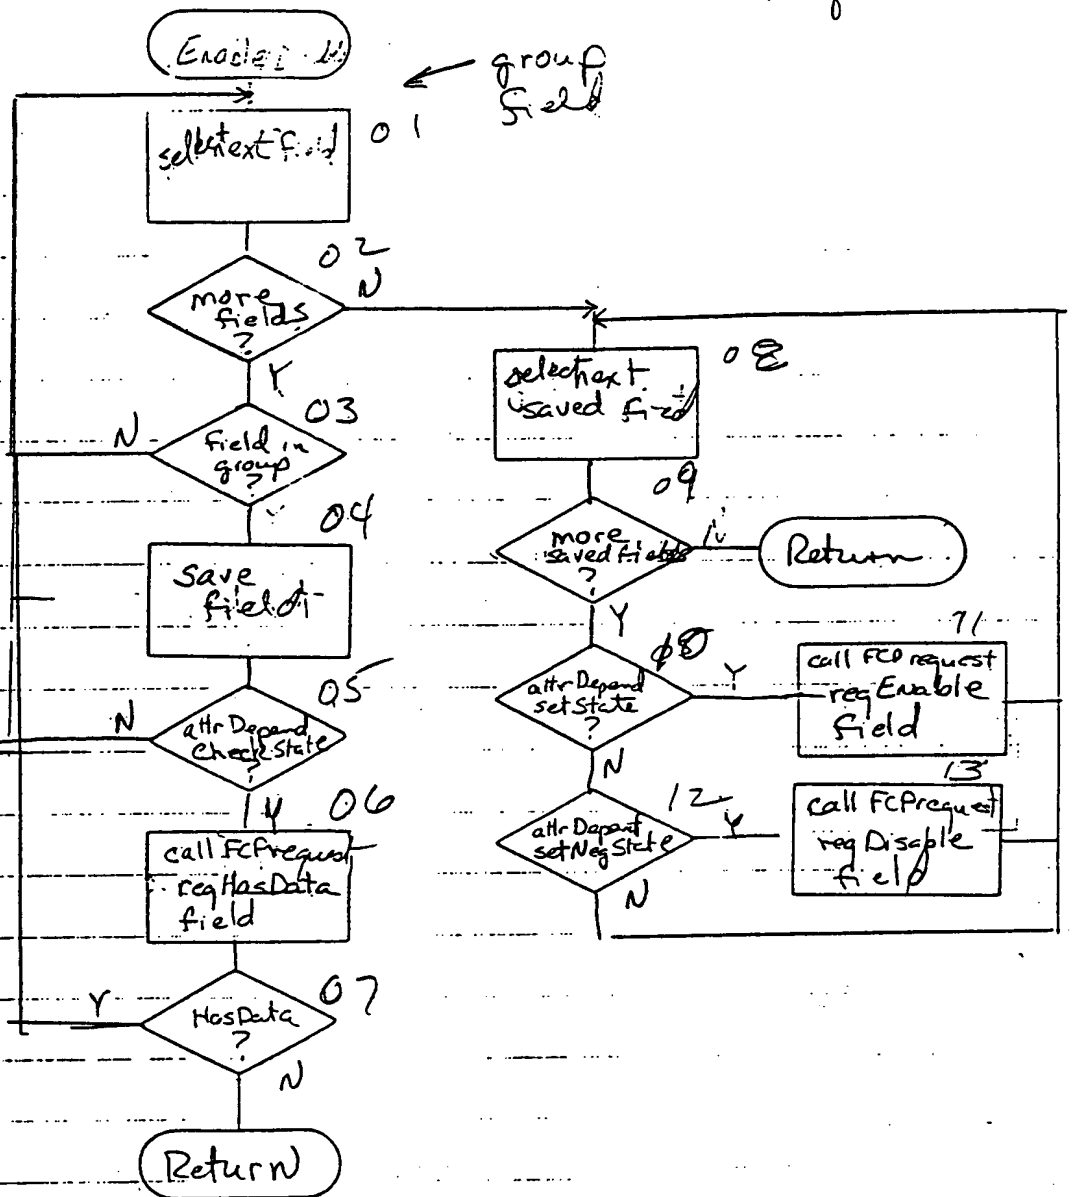 group
field
01
select next field
02
more
fields
?
N
Y
03
field in
group
?
N
04
save
field
05
attrDepend
CheckState
?
N
Y
06
call FCPrequest
reqHasData
field
07
HasData
?
Y
N
Return
08
select next
saved field
09
more
saved fields
?
N
Return
Y
10
attrDepend
setState
?
Y
11
call FCPrequest
reqEnable
field
N
12
attrDepend
setNegState
?
Y
13
call FCPrequest
reqDisable
field
N